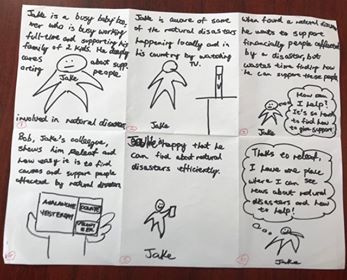 Jake is a busy baby boo
mer who is busy working
full-time and supporting his
family of 2 kids. He deeply
cares about supp
orting people
Jake
involved in natural disaster
1
Jake is aware of some
of the natural disasters
happening locally and in
his country by watching
TV.
Jake
2
When found a natural disaster
he wants to support
financially people affected
by a disaster, but
wastes time finding how
he can support these people
How can
I help?
It's so hard
to find how
to give support
Jake
3
Bob, Jake's colleague,
shows him Releaf and
how easy it is to find
causes and support people
affected by natural disasters
AVALANCHE
YESTERDAY
DONATE
4
Happy that he
can find about natural
disasters efficiently.
Jake
5
Thanks to releaf,
I have one place
where I can see
news about natural
disasters and how
to help!
Jake
6